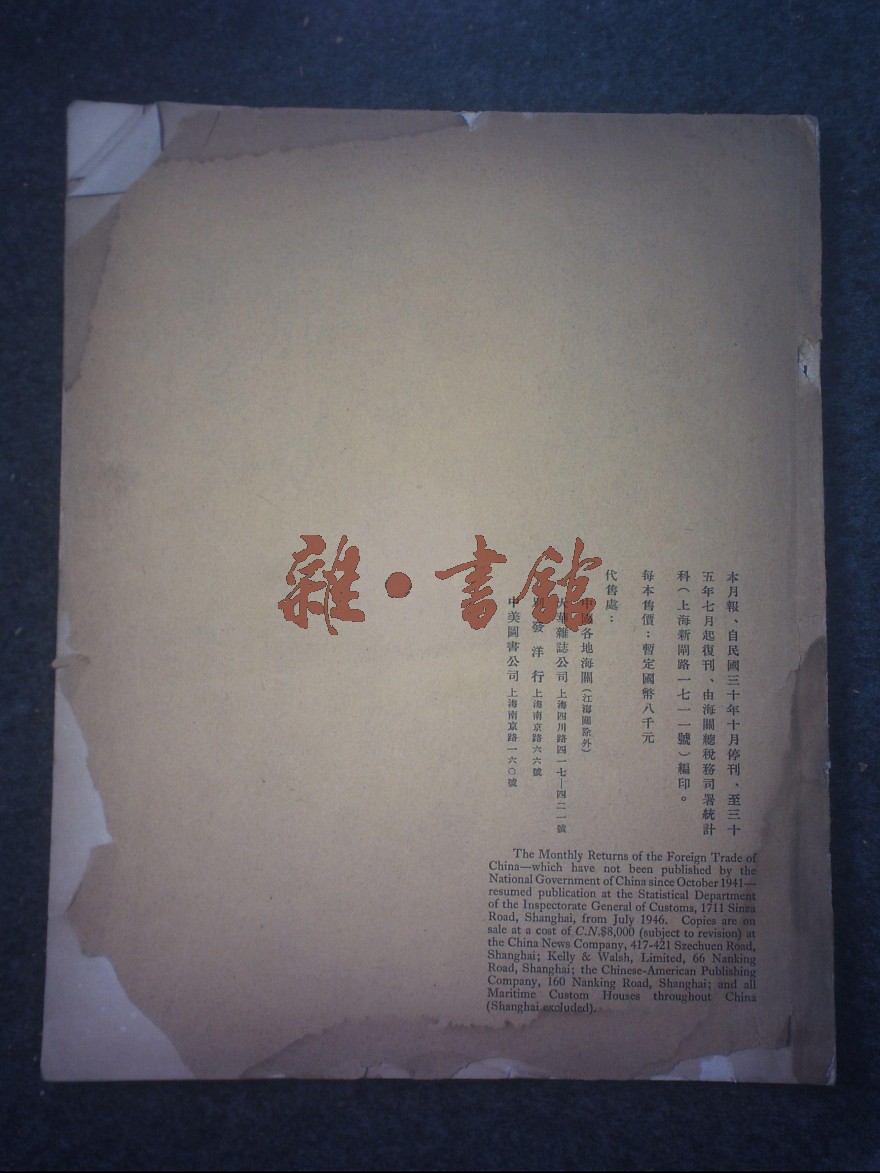 本月報、自民國三十年十月停刊、至三十
五年七月起復刊、由海關總稅務司署統計
科(上海新閘路一七一一號)編印。
每本售價：暫定國幣八千元
代售處：
中國各地海關(江海關除外)
大華雜誌公司 上海四川路四一七—四二一號
別發洋行 上海南京路六六號
中美圖書公司 上海南京路一六〇號
雜·書館
The Monthly Returns of the Foreign Trade of
China—which have not been published by the
National Government of China since October 1941—
resumed publication at the Statistical Department
of the Inspectorate General of Customs, 1711 Sinza
Road, Shanghai, from July 1946. Copies are on
sale at a cost of C.N.$8,000 (subject to revision) at
the China News Company, 417-421 Szechuen Road,
Shanghai; Kelly & Walsh, Limited, 66 Nanking
Road, Shanghai; the Chinese-American Publishing
Company, 160 Nanking Road, Shanghai; and all
Maritime Custom Houses throughout China
(Shanghai excluded).